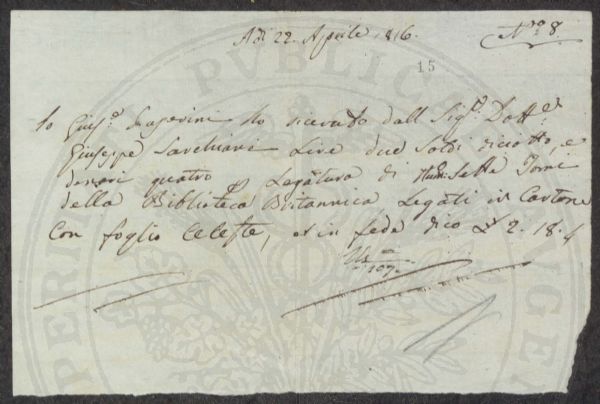 Adì 22. Aprile 1816.
N.ro 8.
15
Io Gius.e ho ricevuto dall Sig.r Dott.e
Giuseppe Sarchiani Lire due Soldi diciotto, e
denari quattro p Legatura di Num. Sette Tomi
della Biblioteca Britannica Legati in Cartone
Con foglio Celeste, et in fede dico £ 2. 18. 4
PUBLICAE